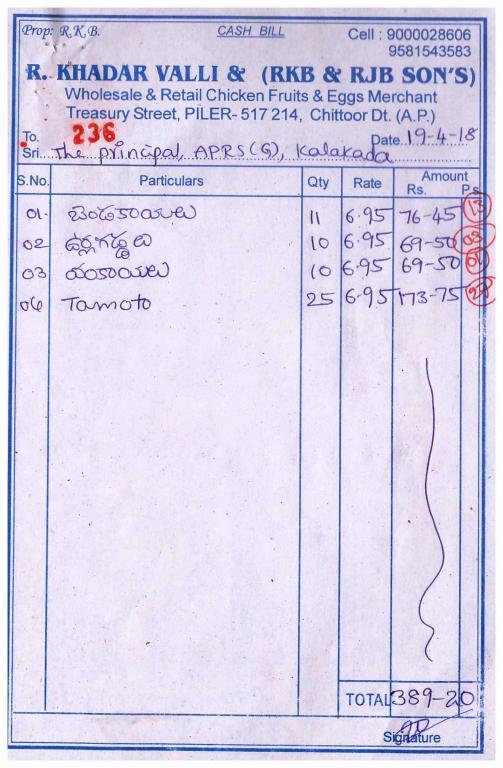 Prop: R.K.B. CASH BILL Cell : 9000028606
9581543583
R. KHADAR VALLI & (RKB & RJB SON'S)
Wholesale & Retail Chicken Fruits & Eggs Merchant
Treasury Street, PILER- 517 214, Chittoor Dt. (A.P.)
To. 236 Date 19-4-18
Sri. The principal, APRS(G), Kalakada
S.No. Particulars Qty Rate Amount
Rs. Ps.
01. బెండకాయలు 11 6.95 76-45 13
02 ఉర్లగడ్డలు 10 6.95 69-50 03
03 వంకాయలు 10 6.95 69-50
04 Tamoto 25 6.95 173-75
TOTAL 389-20
Signature